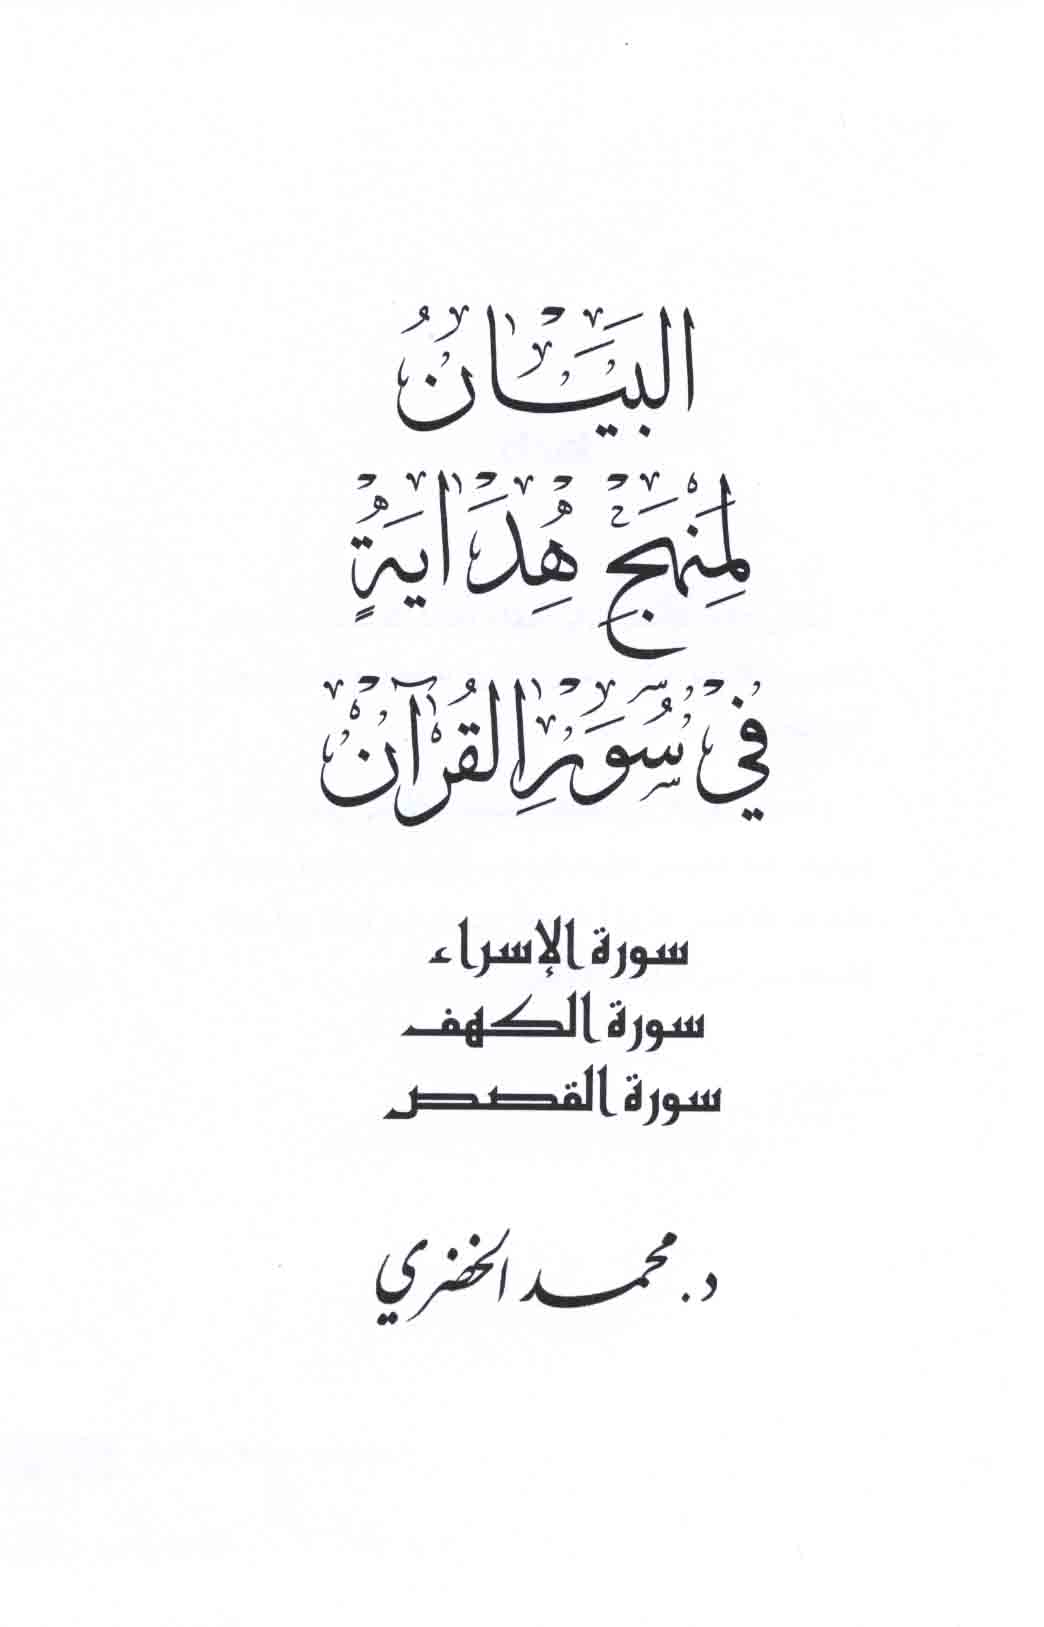 البَيَانُ
لِمَنْهَجِ هُدَايَةٍ
في سُوَرِ القُرْآن
سورة الإسراء
سورة الكهف
سورة القصص
د. محمد الخضري